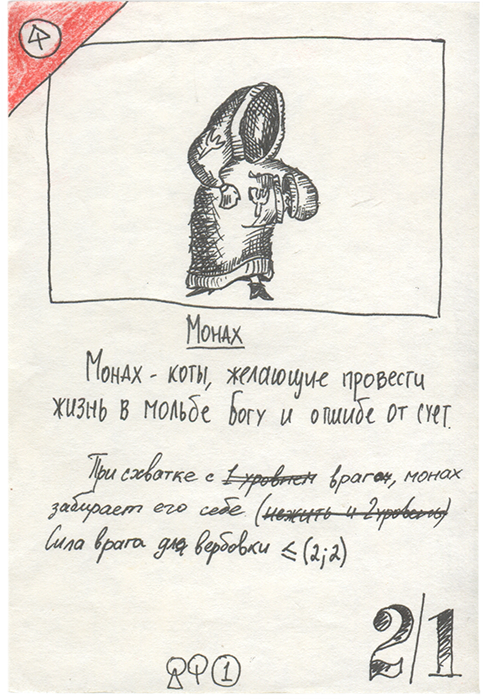 Монах
Монах - коты, желающие провести
жизнь в мольбе Богу и отшибе от сует.
При схватке с 1 уровнем врагом, монах
забирает его себе (нежить и 2 уровень)
Сила врага для вербовки ≤ (2;2)
1
2/1